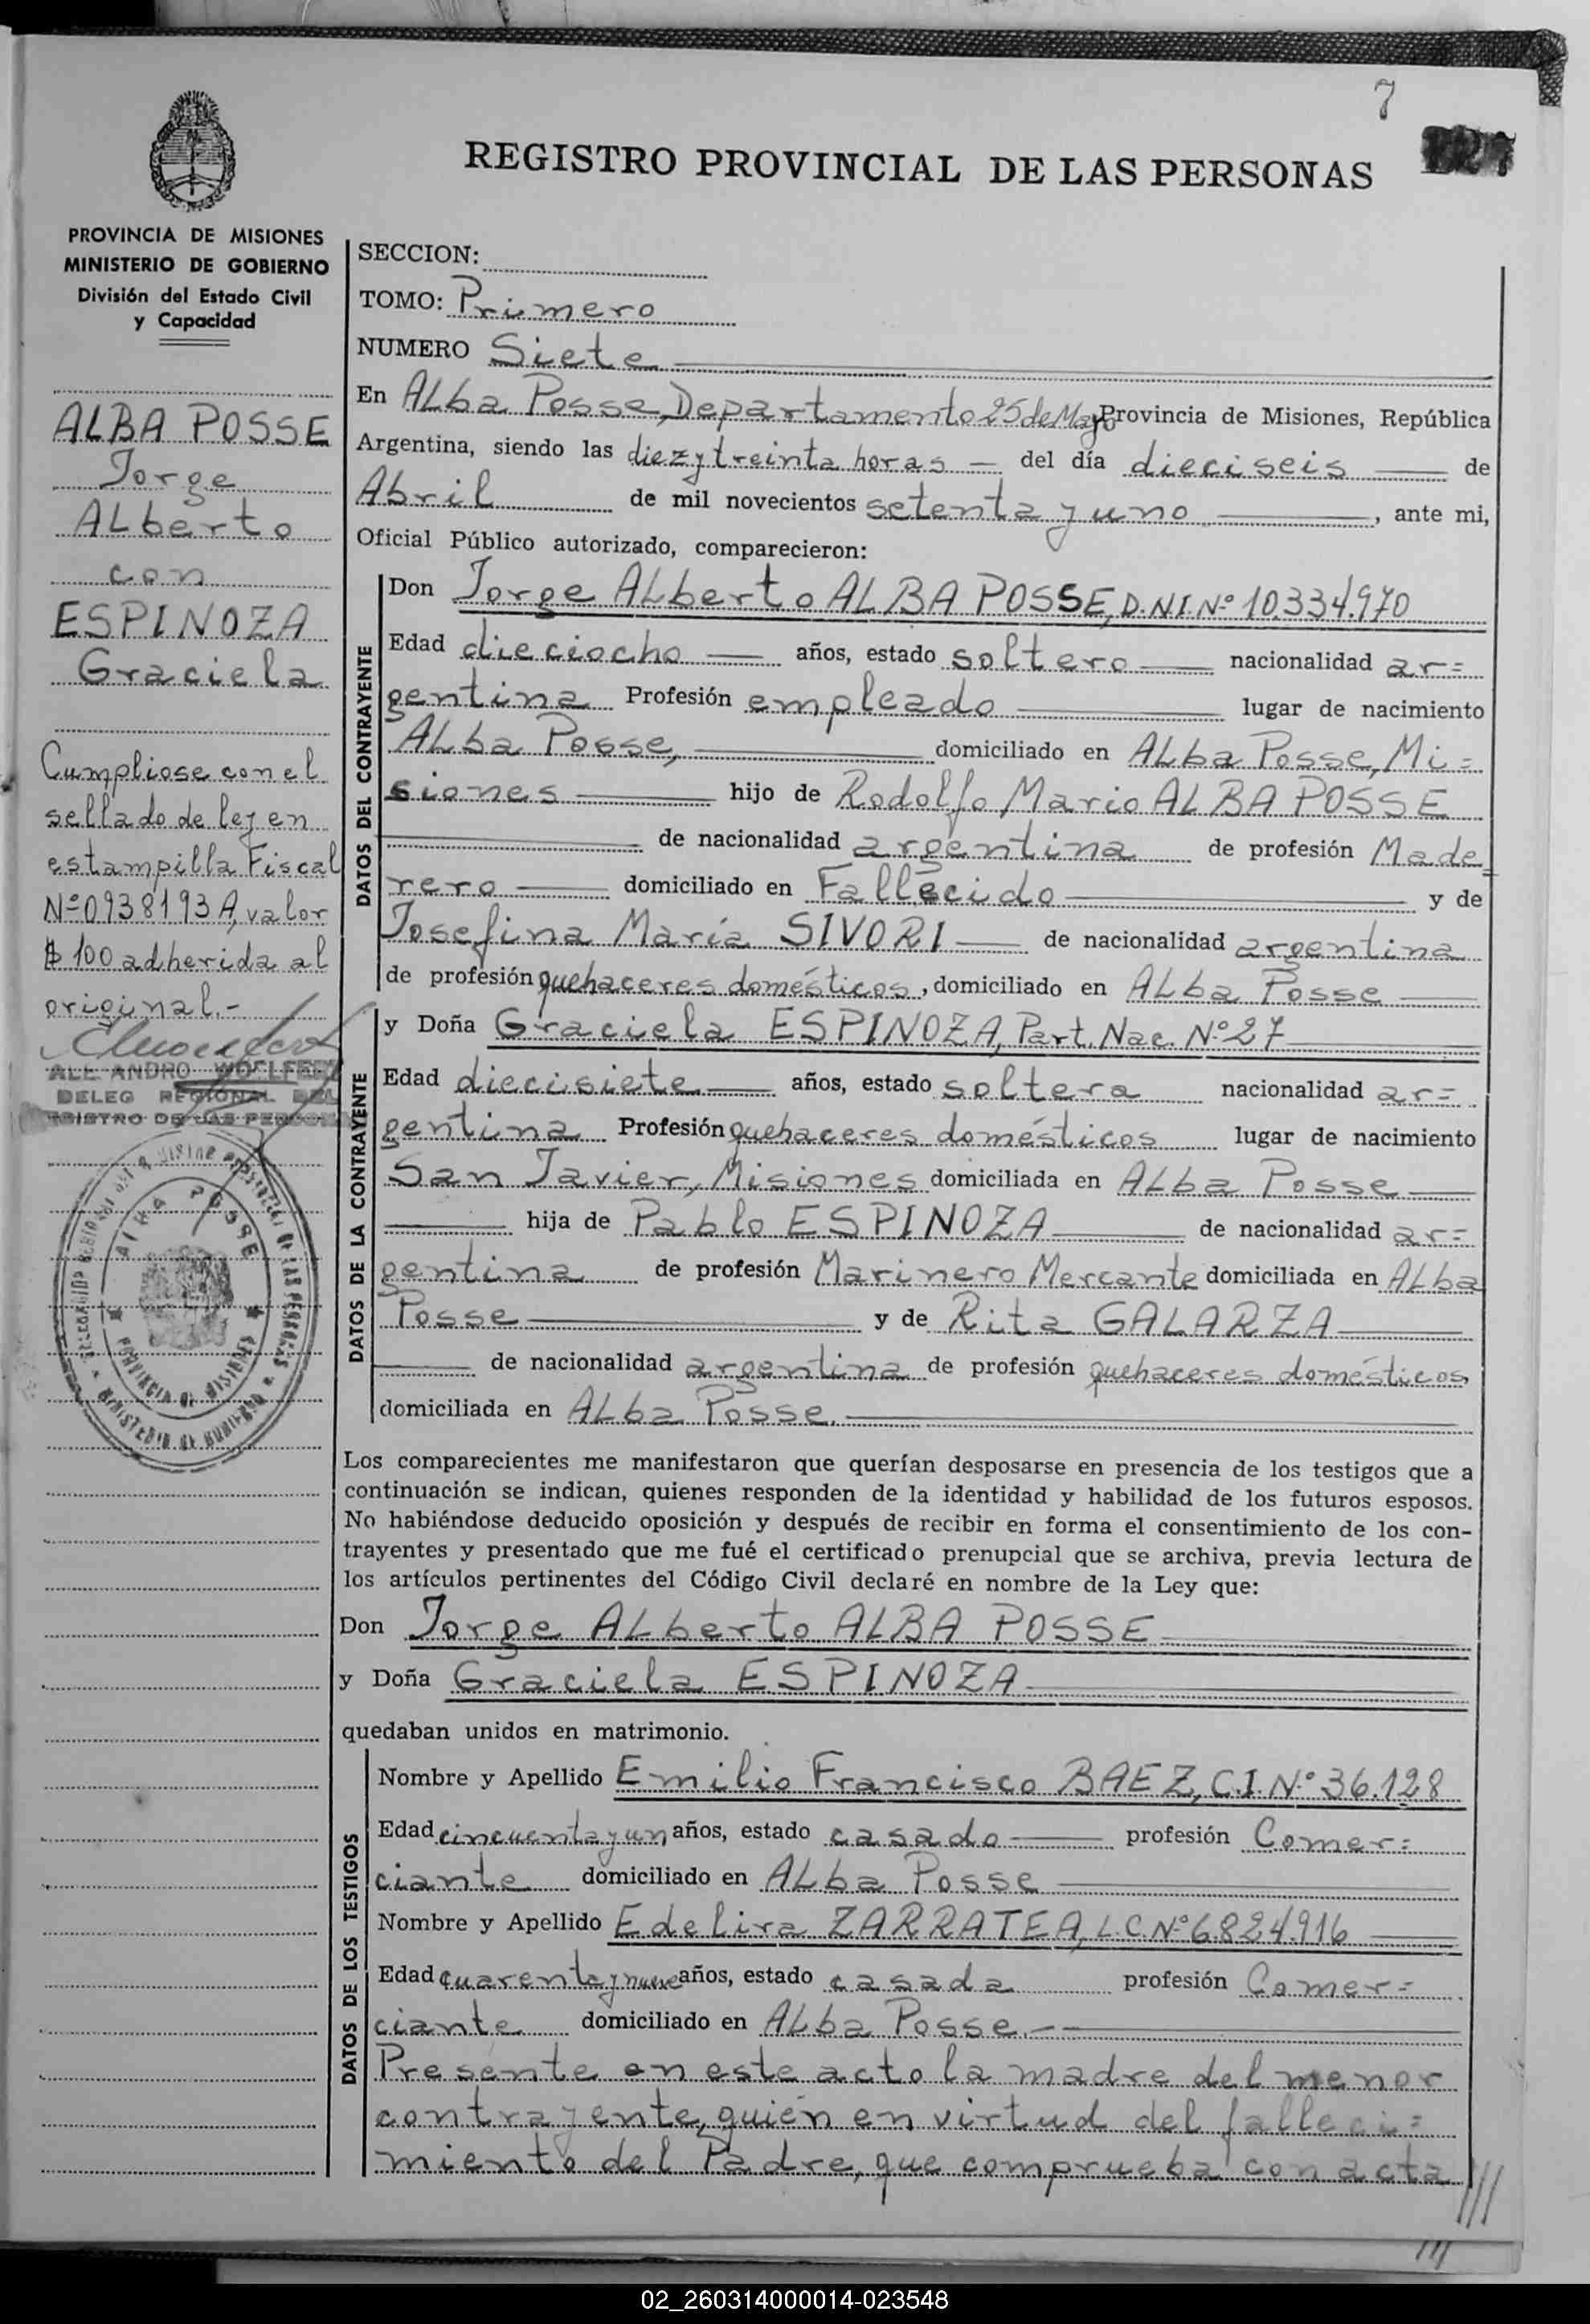 7
REGISTRO PROVINCIAL DE LAS PERSONAS
PROVINCIA DE MISIONES
MINISTERIO DE GOBIERNO
División del Estado Civil
y Capacidad
ALBA POSSE
Jorge
Alberto
con
ESPINOZA
Graciela
Cumpliose con el
sellado de ley en
estampilla Fiscal
Nº 0938193 A, valor
$ 100 adherida al
original.-
DELEG REGIONAL DEL
ALBA POSSE
PROVINCIA DE MISIONES
MINISTERIO DE GOBIERNO
SECCION:
TOMO: Primero
NUMERO Siete
En Alba Posse, Departamento 25 de Mayo Provincia de Misiones, República
Argentina, siendo las diez y treinta horas — del día dieciseis — de
Abril de mil novecientos setenta y uno —, ante mi,
Oficial Público autorizado, comparecieron:
DATOS DEL CONTRAYENTE
Don Jorge Alberto ALBA POSSE, D.N.I. Nº 10.334.970
Edad dieciocho — años, estado soltero — nacionalidad ar=
gentina Profesión empleado — lugar de nacimiento
Alba Posse, — domiciliado en Alba Posse, Mi=
siones — hijo de Rodolfo Mario ALBA POSSE
— de nacionalidad argentina de profesión Made=
rero — domiciliado en Fallecido — y de
Josefina María SIVORI — de nacionalidad argentina
de profesión quehaceres domésticos, domiciliado en Alba Posse —
DATOS DE LA CONTRAYENTE
y Doña Graciela ESPINOZA, Part. Nac. Nº 27
Edad diecisiete — años, estado soltera nacionalidad ar=
gentina Profesión quehaceres domésticos lugar de nacimiento
San Javier, Misiones domiciliada en Alba Posse —
— hija de Pablo ESPINOZA — de nacionalidad ar=
gentina de profesión Marinero Mercante domiciliada en Alba
Posse — y de Rita GALARZA —
— de nacionalidad argentina de profesión quehaceres domésticos,
domiciliada en Alba Posse. —
Los comparecientes me manifestaron que querían desposarse en presencia de los testigos que a
continuación se indican, quienes responden de la identidad y habilidad de los futuros esposos.
No habiéndose deducido oposición y después de recibir en forma el consentimiento de los con-
trayentes y presentado que me fué el certificado prenupcial que se archiva, previa lectura de
los artículos pertinentes del Código Civil declaré en nombre de la Ley que:
Don Jorge Alberto ALBA POSSE
y Doña Graciela ESPINOZA
quedaban unidos en matrimonio.
DATOS DE LOS TESTIGOS
Nombre y Apellido Emilio Francisco BAEZ, C.I. Nº 36.128
Edad cincuenta y un años, estado casado — profesión Comer=
ciante domiciliado en Alba Posse —
Nombre y Apellido Edelira ZARRATEA, L.C. Nº 6.824.916 —
Edad cuarenta y nueve años, estado casada profesión Comer=
ciante domiciliado en Alba Posse. —
Presente en este acto la madre del menor
contrayente, quién en virtud del falleci=
miento del Padre, que comprueba con acta
///
02_260314000014-023548